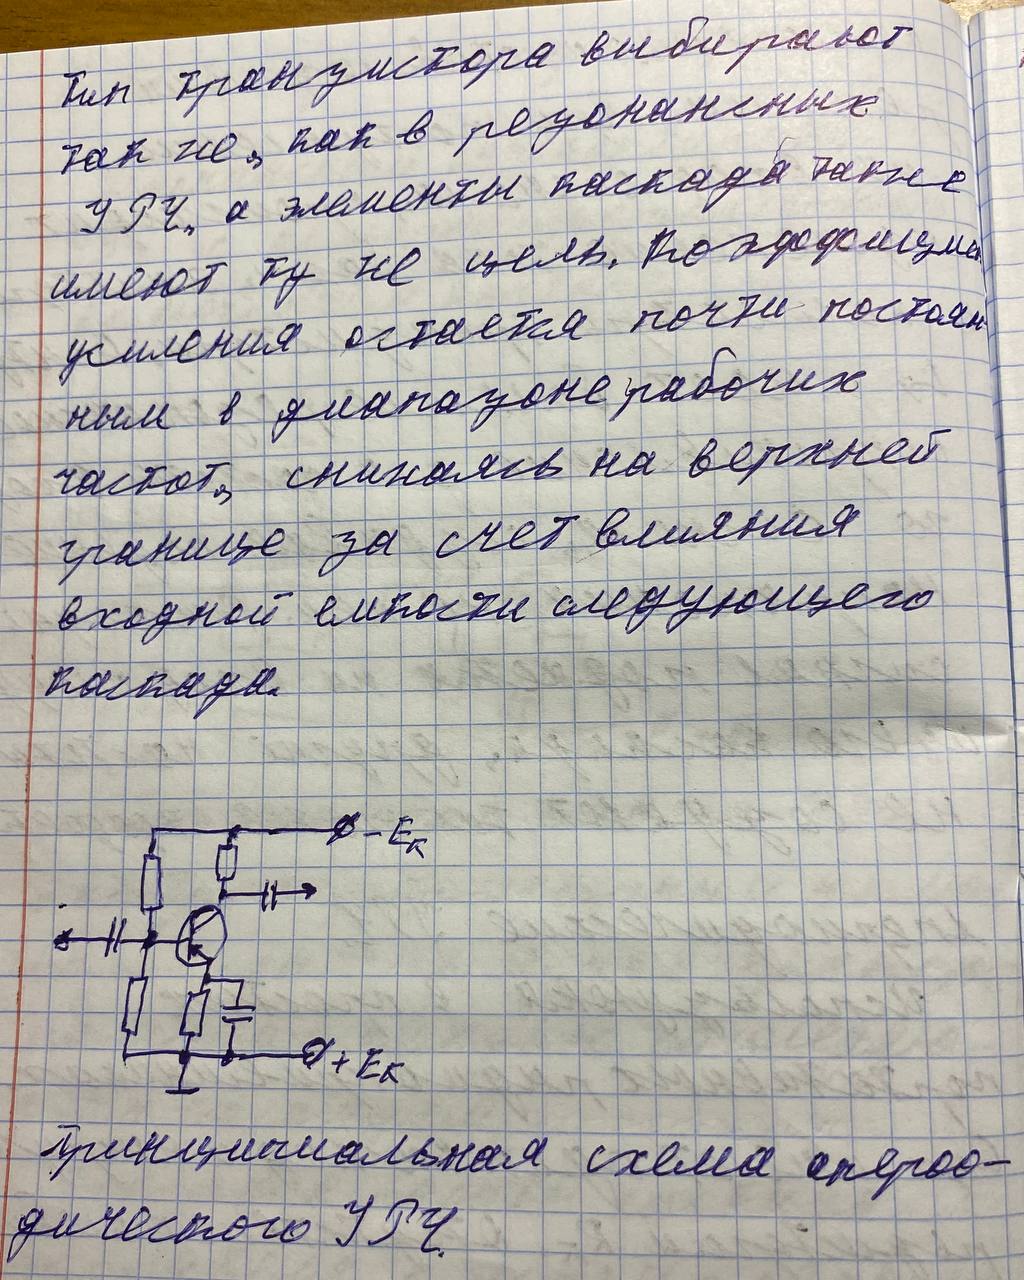 Тип транзистора выбирают
так же, как в резонансных
УРЧ, а элементы каскада также
имеют ту же цель. Коэффициент
усиления остается почти постоян-
ным в диапазоне рабочих
частот, снижаясь на верхней
границе за счет влияния
входной емкости следующего
каскада.
- Eк
+ Eк
Принципиальная схема аперио-
дического УРЧ.